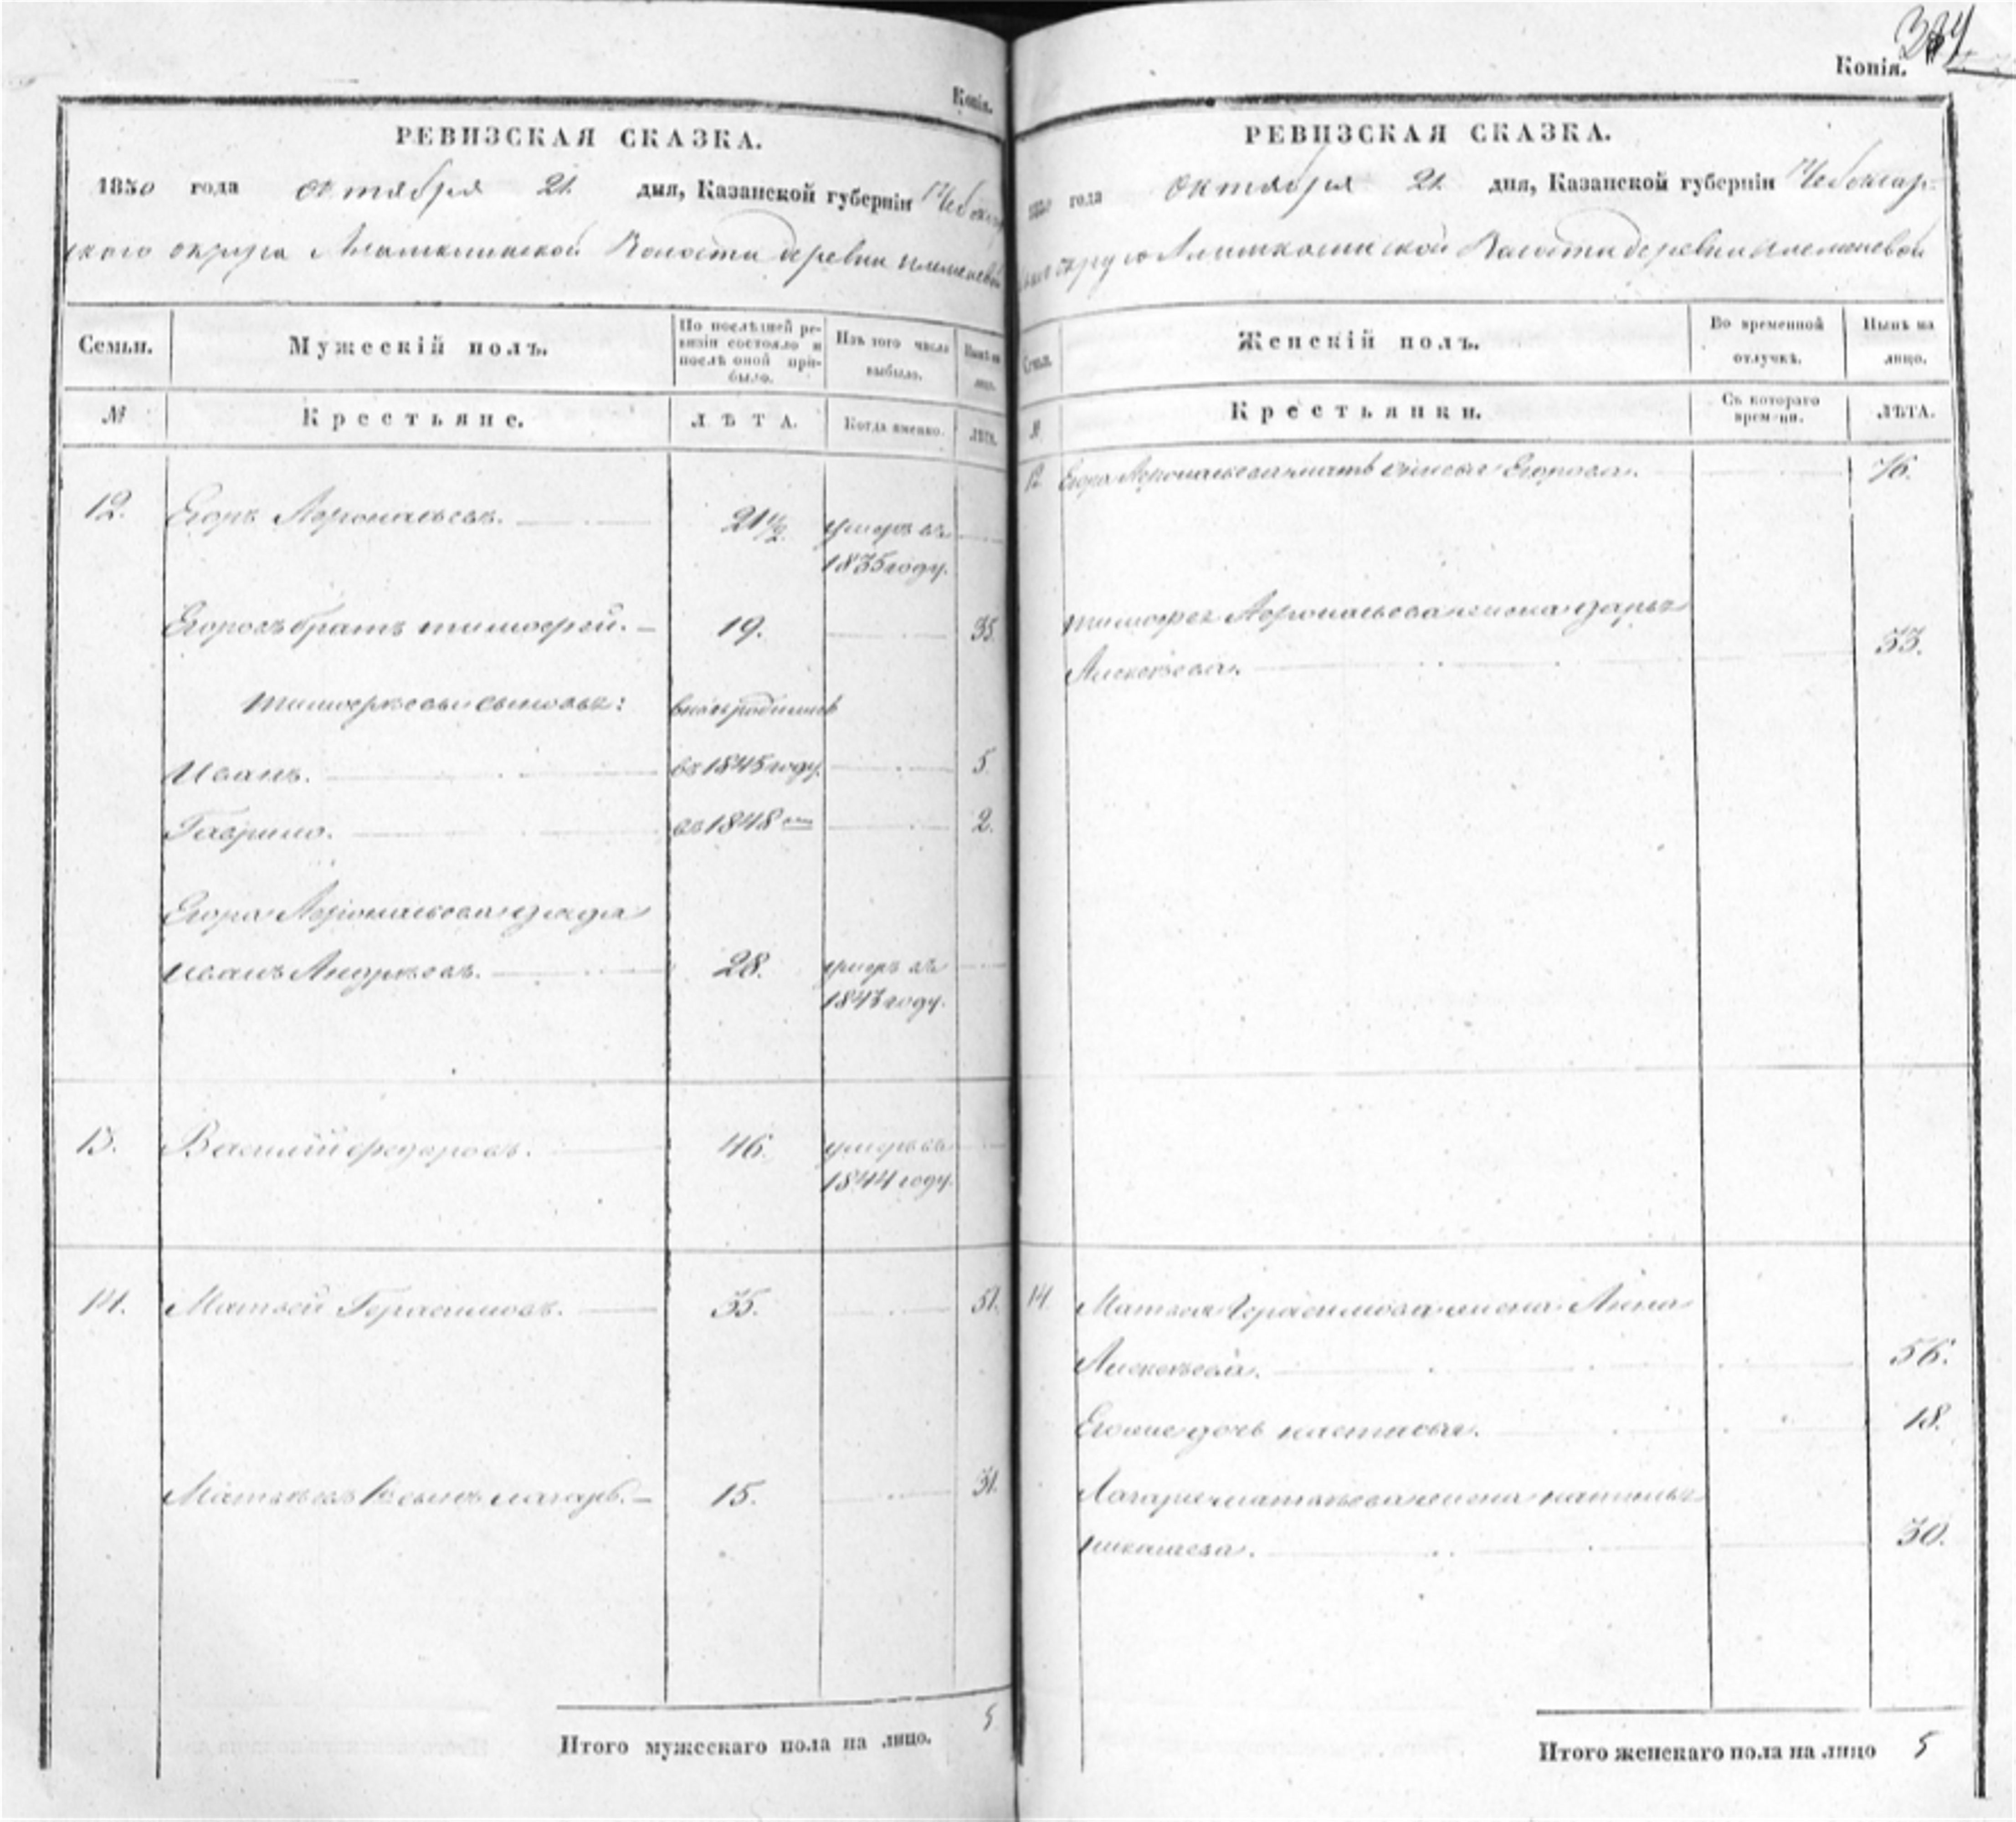 374
Копія.
Копія.
РЕВИЗСКАЯ СКАЗКА.
1850 года октября 21. дня, Казанской губерніи Чебоксар
скаго округа Волости деревни
Семьи.
Мужескій полъ.
По послѣдней ре-
визіи состояло и
послѣ оной при-
было.
Изъ того числа
выбыло.
Нынѣ на
лицо.
№
Крестьяне.
ЛѢТА.
Когда именно.
ЛѢТА.
12. Егоръ 21 1/2 умеръ въ
1835 году.
Егоровъ братъ тимофей. 19. 35.
тимофеевы сыновья: вновь родились
Иванъ. въ 1845 году. 5
Гаврило. въ 1848 2.
Егора дядя
иванъ Андреевъ. 28. умеръ въ
1843 году.
13. Василій федоровъ. 46. умеръ въ
1844 году.
14. Матвей Герасимовъ. 35. 51.
Матвеевъ сынъ лазарь. 15. 31.
Итого мужескаго пола на лицо. 5
РЕВИЗСКАЯ СКАЗКА.
1850 года октября 21. дня, Казанской губерніи Чебоксар-
Волости деревни
Семьи.
Женскій полъ.
Во временной
отлучкѣ.
Нынѣ на
лицо.
№
Крестьянки.
Съ котораго
времени.
ЛѢТА.
12 Егора мать Егорова. 76.
тимофея жена дарья
Алексеева. 33.
14 Матвея Герасимова жена Анна
Алексеева. 56.
Егоже дочь настасья. 18.
Лазаря матвеева жена
30.
Итого женскаго пола на лицо 5